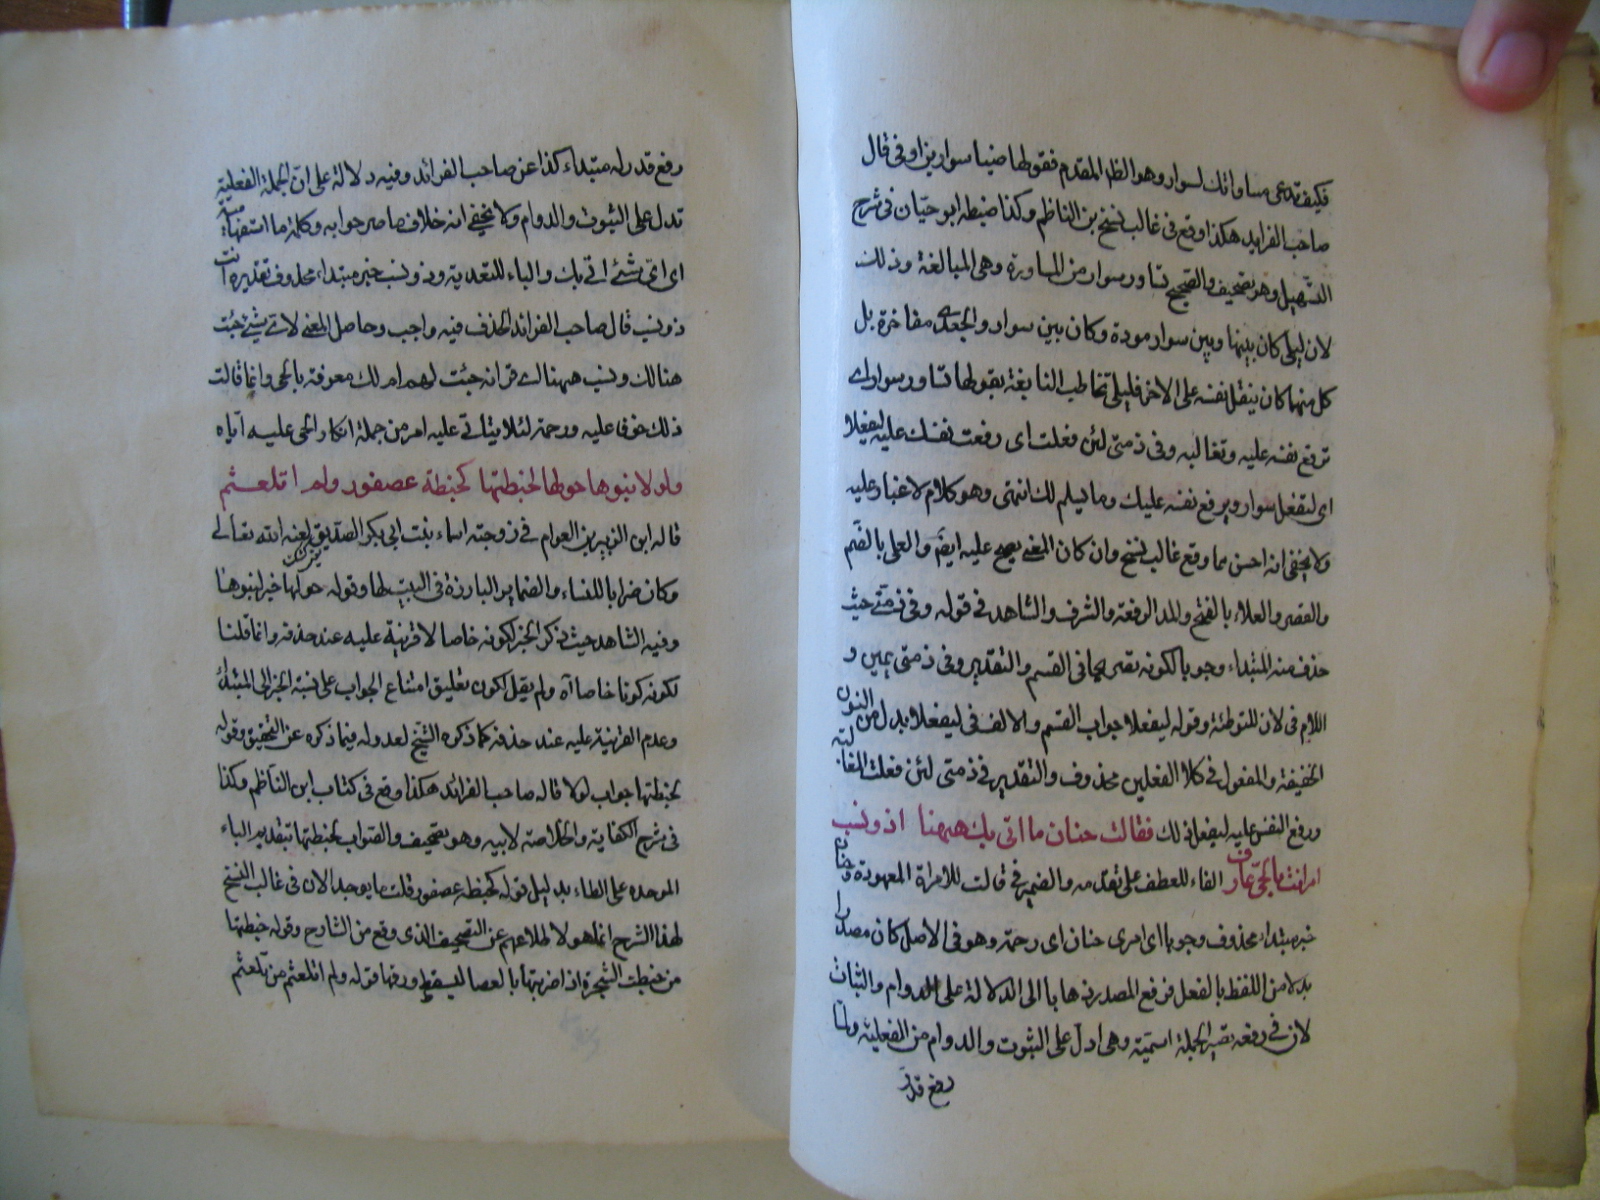 فكيف تدعى مساواتك لسوار وهو الظ المقدم فقولها ضيا سوار بن اوفى قال
صاحب الفرايد هكذا وقع فى غالب نسخ بن الناظم وكذا ضبطه ابو حيّان فى شرح
التسهيل وهو تصحيف والصحيح تساور سوار من المساورة وهى المبالغة وذلك
لان ليلى كان بينها وبين سوار مودة وكان بين سوار والجعدى مفاخرة بل
كل منهما كان ينقل نفسه على الاخر فليلى تخاطب النابغة بقولها تساور سوارا اى
ترفع نفسه عليه وتغالبه وفى ذمتى لئن فعلت اى رفعت نفسك عليه ليفعلا
اى ليفعل سوار ويرفع نفسه عليك وما يسلم لك انتهى وهو كلام لا غبار عليه
ولا يخفى انه احسن مما وقع غالب نسخ وان كان المعنى يصح عليه ايضم والعلى بالضم
والقصر والعلاء بالفتح والمد الرفعة والشرف والشاهد فى قوله وفى ذمتى حيث
حذف منه المبتداء وجوبا لكونه نصريحا فى القسم والتقدير وفى ذمتى يمين و
اللام فى لان للتوطئة وقوله ليفعلا جواب القسم والالف فى ليفعلا بدل من النون
الخفيفة والمفعول فى كلا الفعلين محذوف والتقدير فى ذمتى لئن فعلت المغالبة
ورفع النفس عليه ليفعلن ذلك فقالت حنان ما اتى بك ههنا اذو نسب
ام انت بالحى عارف الفاء للعطف على تقدمه والضمير فى قالت للامراة المعهودة وحنان
خبر مبتداء محذوف وجوبا اى امرى حنان اى رحمة وهو فى الاصل كان مصدرا
بدلا من اللفظ بالفعل فرفع المصدر ذهابا الى الدلالة على الدوام والثبات
لان فى رفعه تصير الجملة اسمية وهى ادل على الثبوت والدوام من الفعلية ولما
رفع قدر
رفع قدر له مبتداء كذا عن صاحب الفرائد وفيه دلالة على ان الجملة الفعلية
تدل على الثبوت والدوام ولا يخفى انه خلاف ما صر جوابه وكلمة ما استفهامية
اى اىّ شئ اتى بك والباء للتعدية وذو نسب خبر مبتداء محذوف تقديره انت
ذو نسب قال صاحب الفرائد الحذف فيه واجب وحاصل المعنى لاى شئ جئت
هنا لك ونسب ههنا اى قرابة جئت لهم ام لك معرفة بالحى وانما قالت
ذلك خوفا عليه ورحمة لئلا يتاتى عليه امر من جملة انكار الحى عليه اياه
ولولا بنوها حولها لخبطتها كخبطة عصفور ولم اتلعثم
قاله ابن الزبير بن العوام فى زوجته اسماء بنت ابى بكر الصديق لعنه الله تعالى
وكان ضرابا للنساء والضماير البارزة فى البيت لها وقوله حولها خبر لبنوها
وفيه الشاهد حيث ذكر الخبر لكونه خاصا لا قرينة عليه عند حذفه وانما قلنا
لكونه كونا خاصا آه ولم يقل لكون تعليق امتناع الجواب على نسبة الخبر الى المبتداء
وعدم القرنية عليه عند حذفه كما ذكره الشيخ لعدوله فيما ذكره عن التحقيق وقوله
لخبطتها جواب لولا قاله صاحب الفرائد هكذا وقع فى كتاب ابن الناظم وكذا
فى شرح الكفاية والخلاصة لابيه وهو تصحيف والصواب لخبطتها بتقديم الباء
الموحده على الطاء بدليل قوله كخبطه عصفور قلت ما يوجد الان فى غالب النسخ
لهذا الشرح انما هو لاطلاعهم عن التصحيف الذى وقع من الشارح وقوله خبطتها
من خبطت الشجرة اذا ضربتها بالعصا ليسقط ورقها قوله ولم اتلعثم من تلعثم